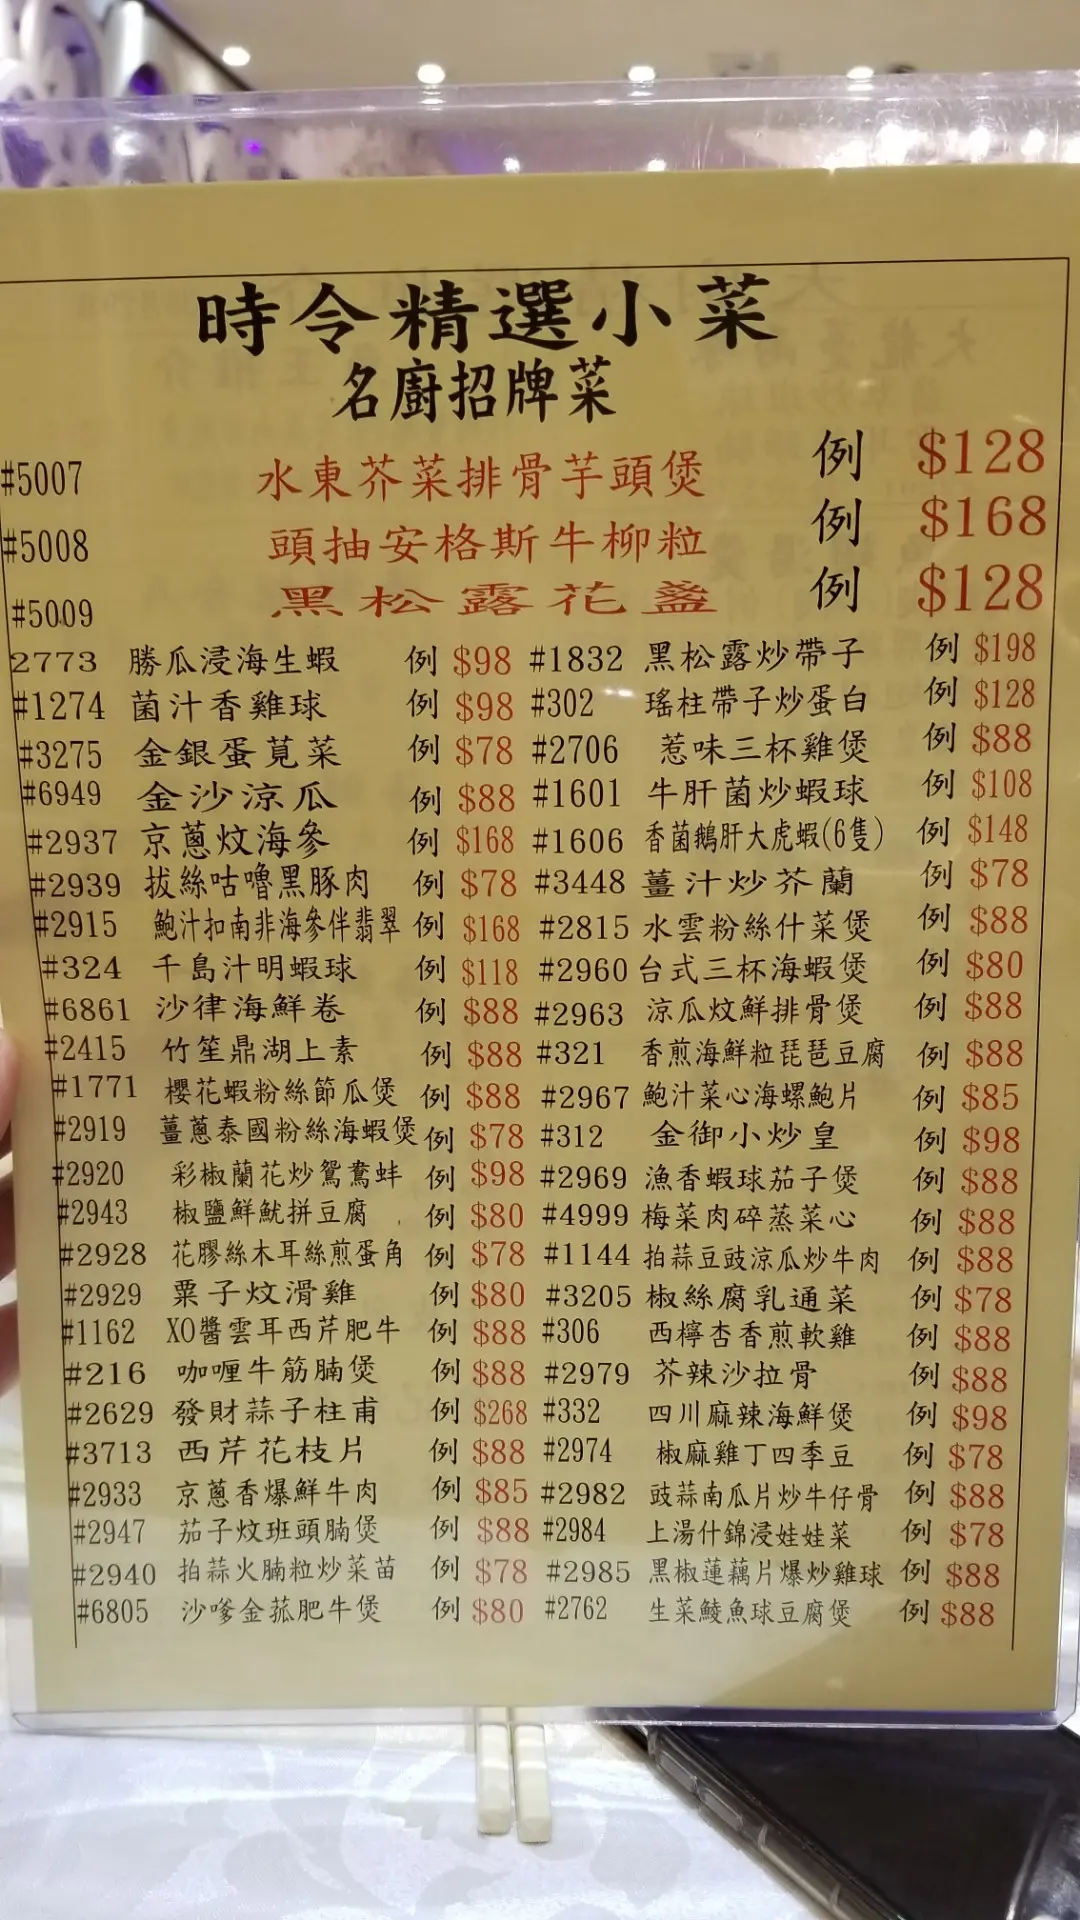 時令精選小菜
名廚招牌菜
#5007 水東芥菜排骨芋頭煲 例 $128
#5008 頭抽安格斯牛柳粒 例 $168
#5009 黑松露花盞 例 $128
2773 勝瓜浸海生蝦 例 $98 #1832 黑松露炒帶子 例 $198
#1274 菌汁香雞球 例 $98 #302 瑤柱帶子炒蛋白 例 $128
#3275 金銀蛋莧菜 例 $78 #2706 惹味三杯雞煲 例 $88
#6949 金沙涼瓜 例 $88 #1601 牛肝菌炒蝦球 例 $108
#2937 京蔥炆海參 例 $168 #1606 香菌鵝肝大虎蝦(6隻) 例 $148
#2939 拔絲咕嚕黑豚肉 例 $78 #3448 薑汁炒芥蘭 例 $78
#2915 鮑汁扣南非海參伴翡翠 例 $168 #2815 水雲粉絲什菜煲 例 $88
#324 千島汁明蝦球 例 $118 #2960 台式三杯海蝦煲 例 $80
#6861 沙律海鮮卷 例 $88 #2963 涼瓜炆鮮排骨煲 例 $88
#2415 竹笙鼎湖上素 例 $88 #321 香煎海鮮粒琵琶豆腐 例 $88
#1771 櫻花蝦粉絲節瓜煲 例 $88 #2967 鮑汁菜心海螺鮑片 例 $85
#2919 薑蔥泰國粉絲海蝦煲 例 $78 #312 金御小炒皇 例 $98
#2920 彩椒蘭花炒鴛鴦蚌 例 $98 #2969 漁香蝦球茄子煲 例 $88
#2943 椒鹽鮮魷拼豆腐 例 $80 #4999 梅菜肉碎蒸菜心 例 $88
#2928 花膠絲木耳絲煎蛋角 例 $78 #1144 拍蒜豆豉涼瓜炒牛肉 例 $88
#2929 粟子炆滑雞 例 $80 #3205 椒絲腐乳通菜 例 $78
#1162 XO醬雲耳西芹肥牛 例 $88 #306 西檸杏香煎軟雞 例 $88
#216 咖喱牛筋腩煲 例 $88 #2979 芥辣沙拉骨 例 $88
#2629 發財蒜子柱甫 例 $268 #332 四川麻辣海鮮煲 例 $98
#3713 西芹花枝片 例 $88 #2974 椒麻雞丁四季豆 例 $78
#2933 京蔥香爆鮮牛肉 例 $85 #2982 豉蒜南瓜片炒牛仔骨 例 $88
#2947 茄子炆班頭腩煲 例 $88 #2984 上湯什錦浸娃娃菜 例 $78
#2940 拍蒜火腩粒炒菜苗 例 $78 #2985 黑椒蓮藕片爆炒雞球 例 $88
#6805 沙嗲金菇肥牛煲 例 $80 #2762 生菜鯪魚球豆腐煲 例 $88